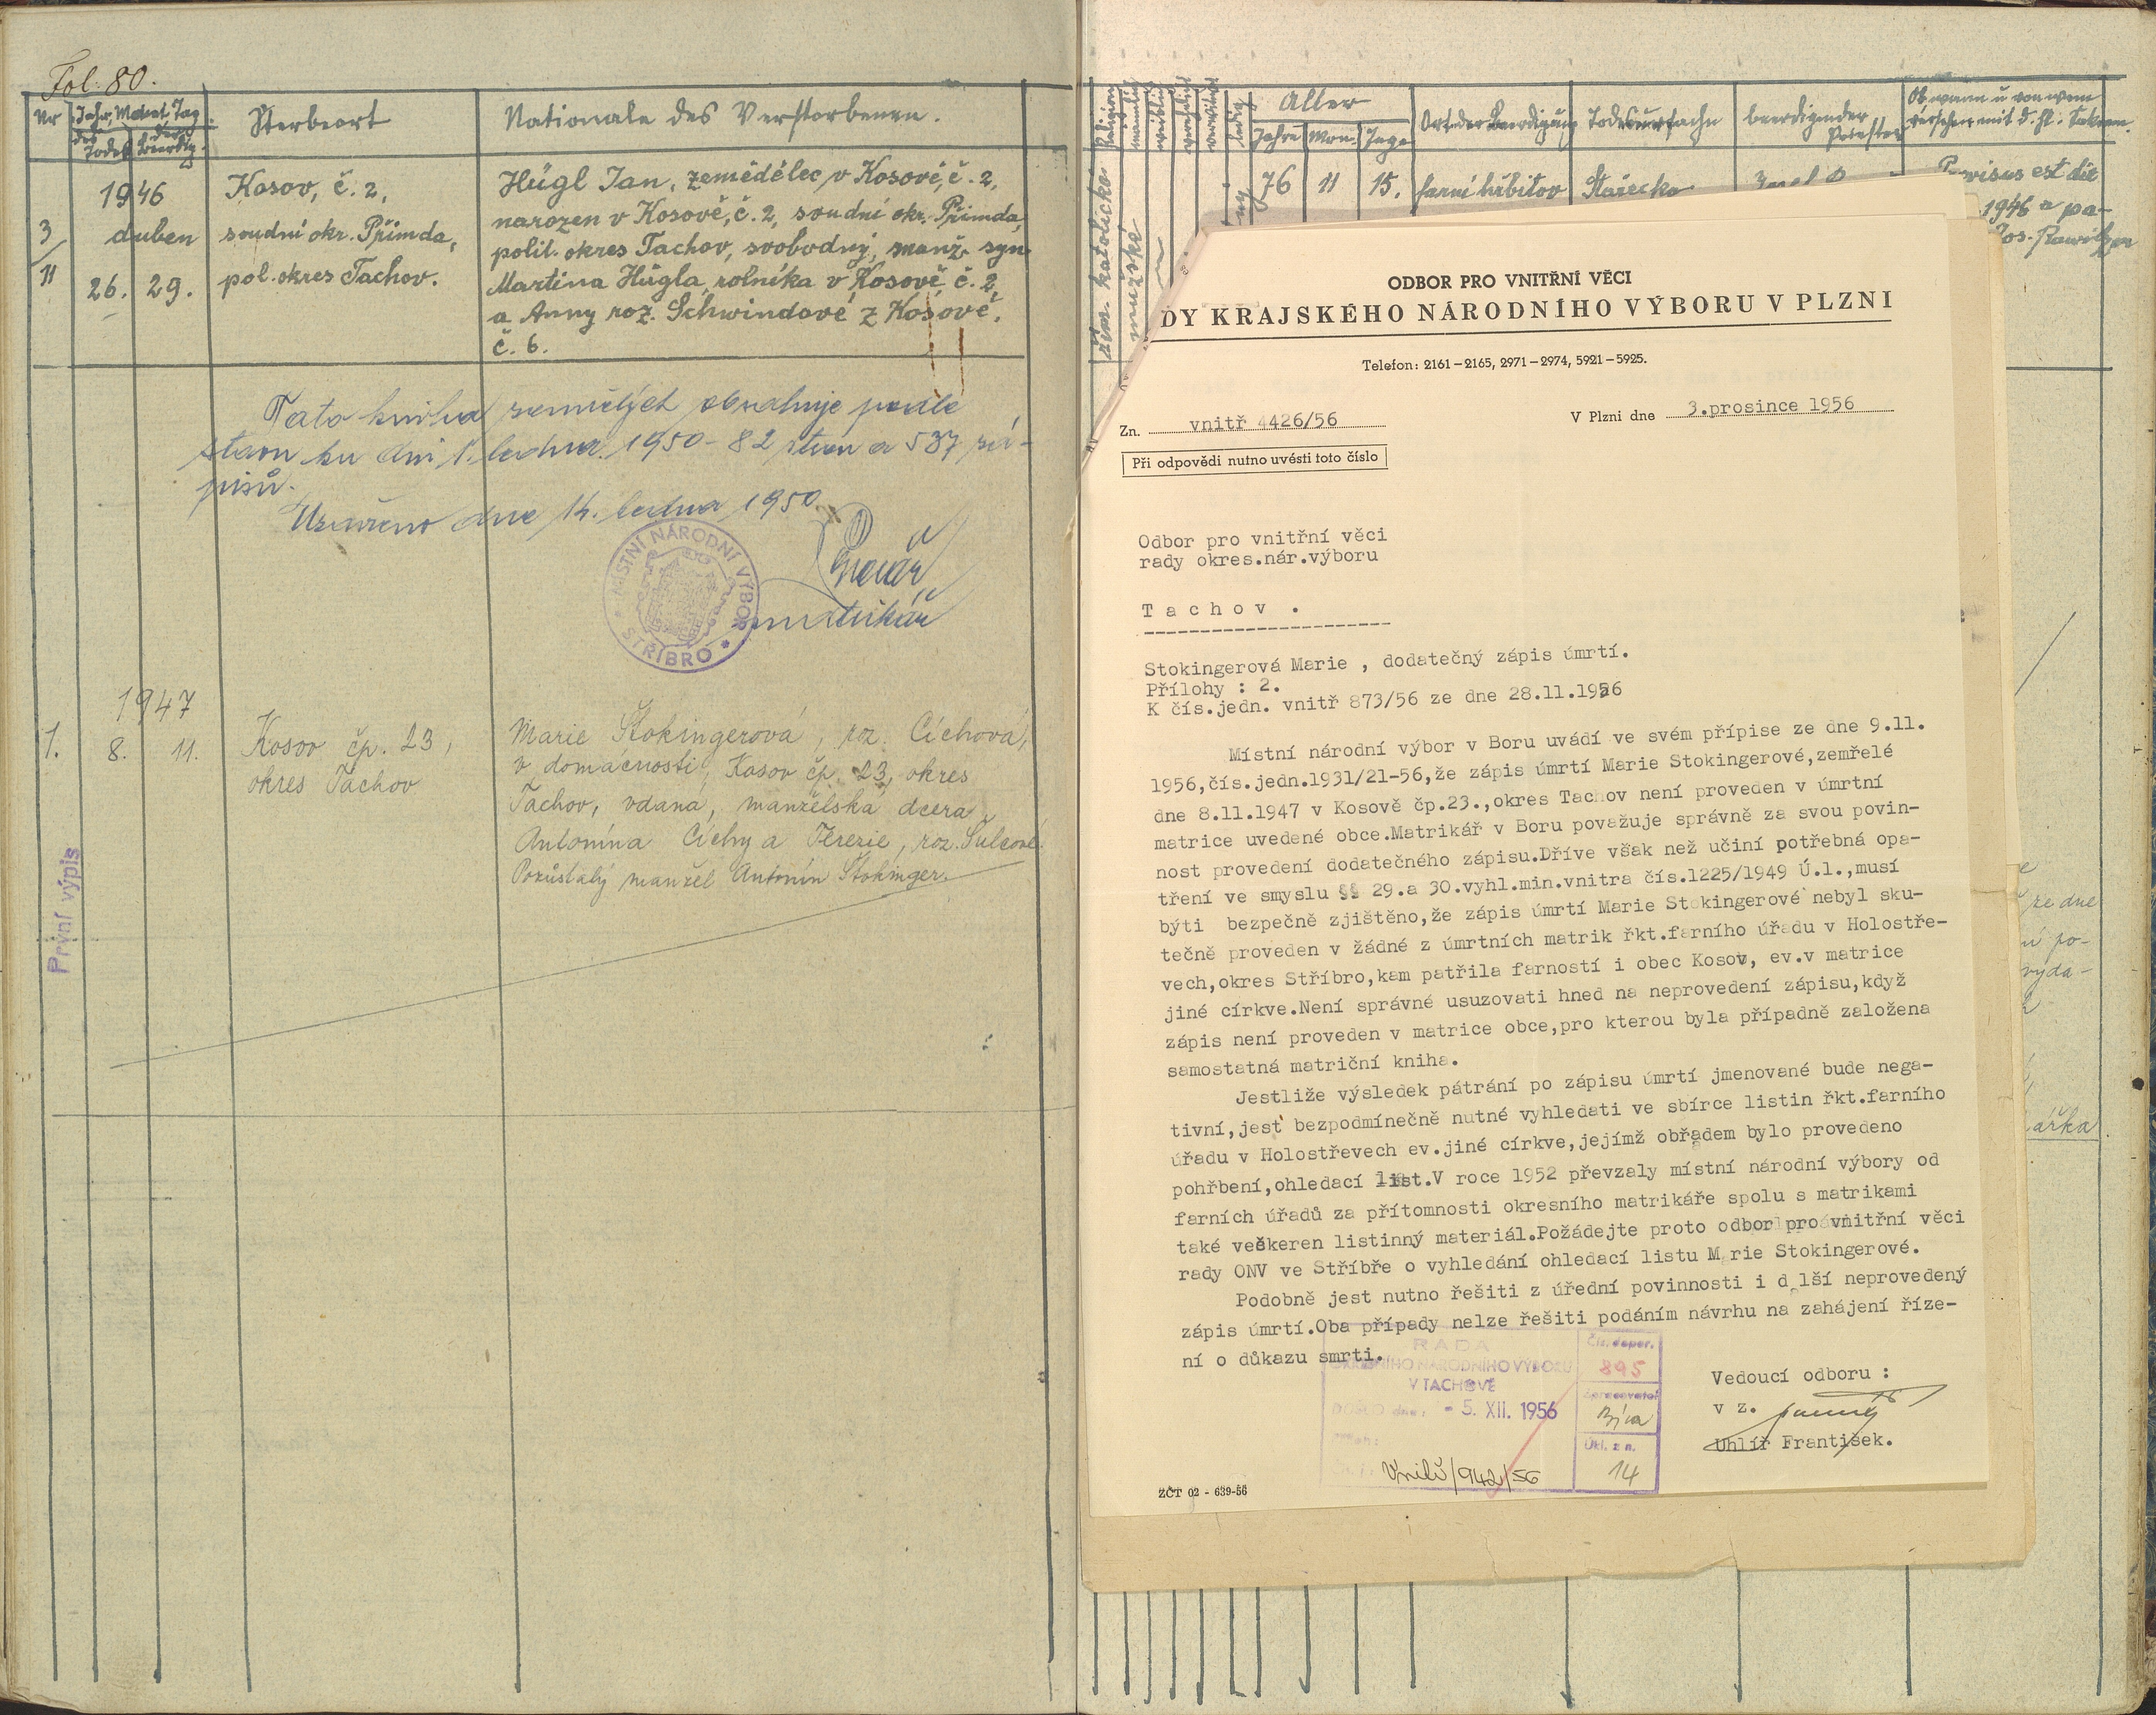 Fol. 80.
Nr
Jahr, Monat Tag
des Todes
der Beerdig.
Sterbeort
Nationale des Verstorbenen.
1946
3
11
duben
26. 29.
Kosov, č. 2,
soudní okr. Přimda,
pol. okres Tachov.
Hügl Jan, zemědělec, v Kosově, č. 2,
narozen v Kosově, č. 2, soudní okr. Přimda,
polit. okres Tachov, svobodný, manž. syn
Martina Hügla, rolníka v Kosově č. 2,
a Anny roz. Schwindové z Kosově,
č. 6.
Tato kniha zemřelých obsahuje podle
stavu ku dni 1. ledna 1950 - 82 stran a 537 zá-
pisů.
Uzavřeno dne 14. ledna 1950.
matrikář
MÍSTNÍ NÁRODNÍ VÝBOR
STŘÍBRO
1947
1.
8. 11.
Kosov čp. 23,
okres Tachov
Marie Štokingerová, roz. Cíchová,
v domácnosti, Kosov čp. 23, okres
Tachov, vdaná, manželská dcera
Antonína Cíchy a Terezie, roz. Šulcové.
Pozůstalý manžel Antonín Štokinger.
První výpis
Religion
männlich
weiblich
verwitwet
ledig
Alter
Jahre Mon. Tage
Ort der Beerdigung
Todesursache
beerdigender Priester
Ob, wann u. von wem
versehen mit d. hl. Sakram.
řím. katolické
mužské
76 11 15.
farní hřbitov
Stařecko
Provisus est die
1946 a pa-
Jos.
ODBOR PRO VNITŘNÍ VĚCI
DY KRAJSKÉHO NÁRODNÍHO VÝBORU V PLZNI
Telefon: 2161–2165, 2971–2974, 5921–5925.
Zn. vnitř 4426/56
V Plzni dne 3.prosince 1956
Při odpovědi nutno uvésti toto číslo
Odbor pro vnitřní věci
rady okres.nár.výboru
T a c h o v .
Stokingerová Marie , dodatečný zápis úmrtí.
Přílohy : 2.
K čís.jedn. vnitř 873/56 ze dne 28.11.1956
Místní národní výbor v Boru uvádí ve svém přípise ze dne 9.11.
1956,čís.jedn.1931/21-56,že zápis úmrtí Marie Stokingerové,zemřelé
dne 8.11.1947 v Kosově čp.23.,okres Tachov není proveden v úmrtní
matrice uvedené obce.Matrikář v Boru považuje správně za svou povin-
nost provedení dodatečného zápisu.Dříve však než učiní potřebná opa-
tření ve smyslu §§ 29.a 30.vyhl.min.vnitra čís.1225/1949 Ú.l.,musí
býti bezpečně zjištěno,že zápis úmrtí Marie Stokingerové nebyl sku-
tečně proveden v žádné z úmrtních matrik řkt.farního úřadu v Holostře-
vech,okres Stříbro,kam patřila farností i obec Kosov, ev.v matrice
jiné církve.Není správné usuzovati hned na neprovedení zápisu,když
zápis není proveden v matrice obce,pro kterou byla případně založena
samostatná matriční kniha.
Jestliže výsledek pátrání po zápisu úmrtí jmenované bude nega-
tivní,jest bezpodmínečně nutné vyhledati ve sbírce listin řkt.farního
úřadu v Holostřevech ev.jiné církve,jejímž obřadem bylo provedeno
pohřbení,ohledací list.V roce 1952 převzaly místní národní výbory od
farních úřadů za přítomnosti okresního matrikáře spolu s matrikami
také veškeren listinný materiál.Požádejte proto odbor pro vnitřní věci
rady ONV ve Stříbře o vyhledání ohledací listu M rie Stokingerové.
Podobně jest nutno řešiti z úřední povinnosti i další neprovedený
zápis úmrtí.Oba případy nelze řešiti podáním návrhu na zahájení říze-
ní o důkazu smrti.
RADA
OKRESNÍHO NÁRODNÍHO VÝBORU
V TACHOVĚ
DOŠLO dne: - 5. XII. 1956
Vnitř/942/56
Čís. dopor.
895
Zpracovatel
Ukl. zn.
14
Vedoucí odboru :
v z.
Uhlíř František.
ZČT 02 - 639-56
ze dne
ní po-
vydá-
ářka